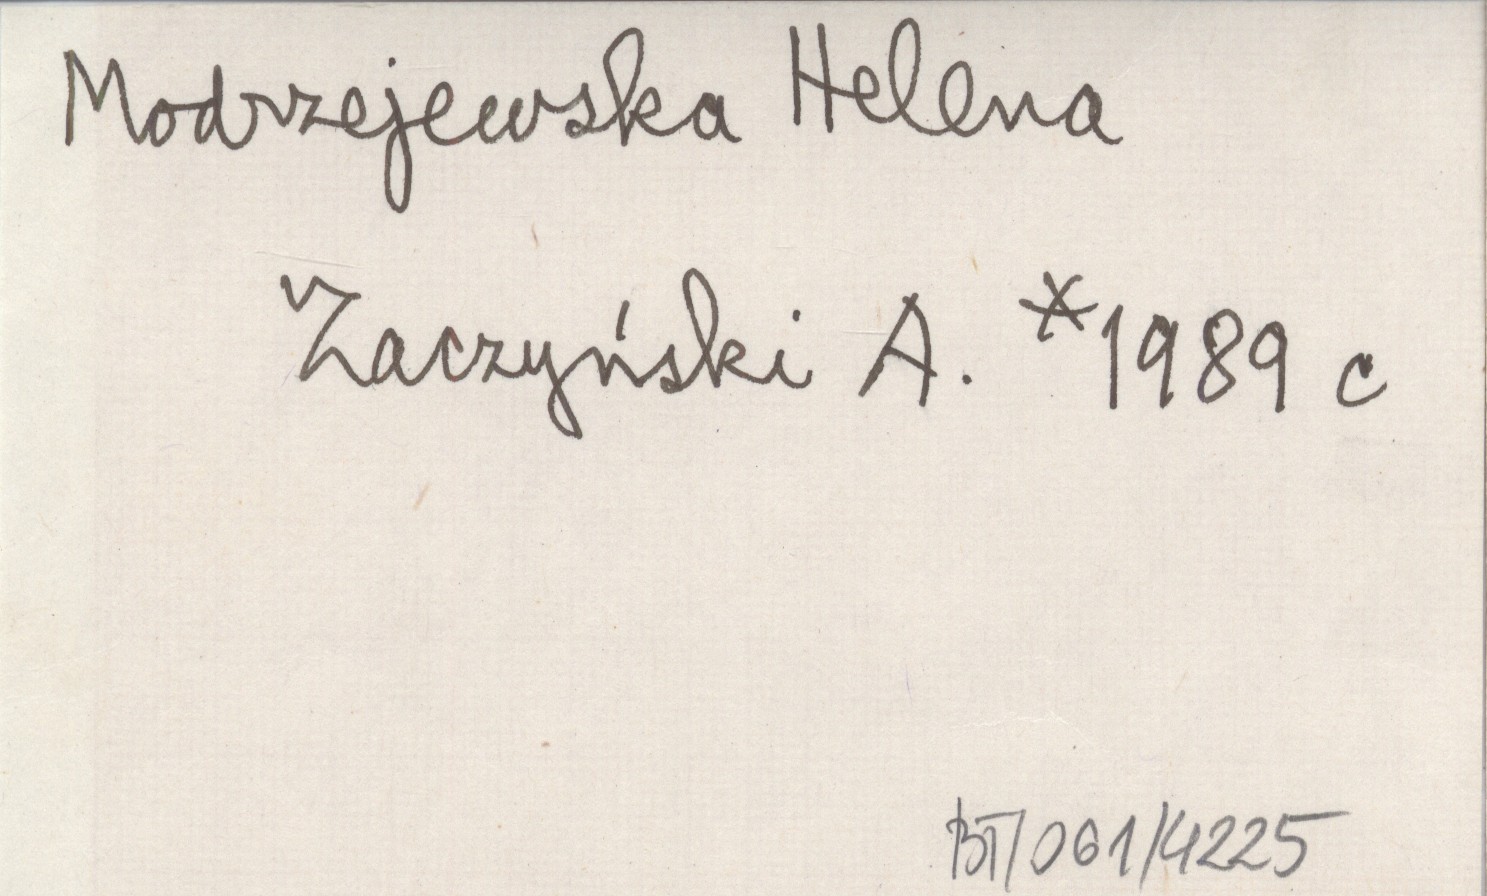 Modrzejewska Helena
Zaczyński A. *1989 c
BT/061/4225